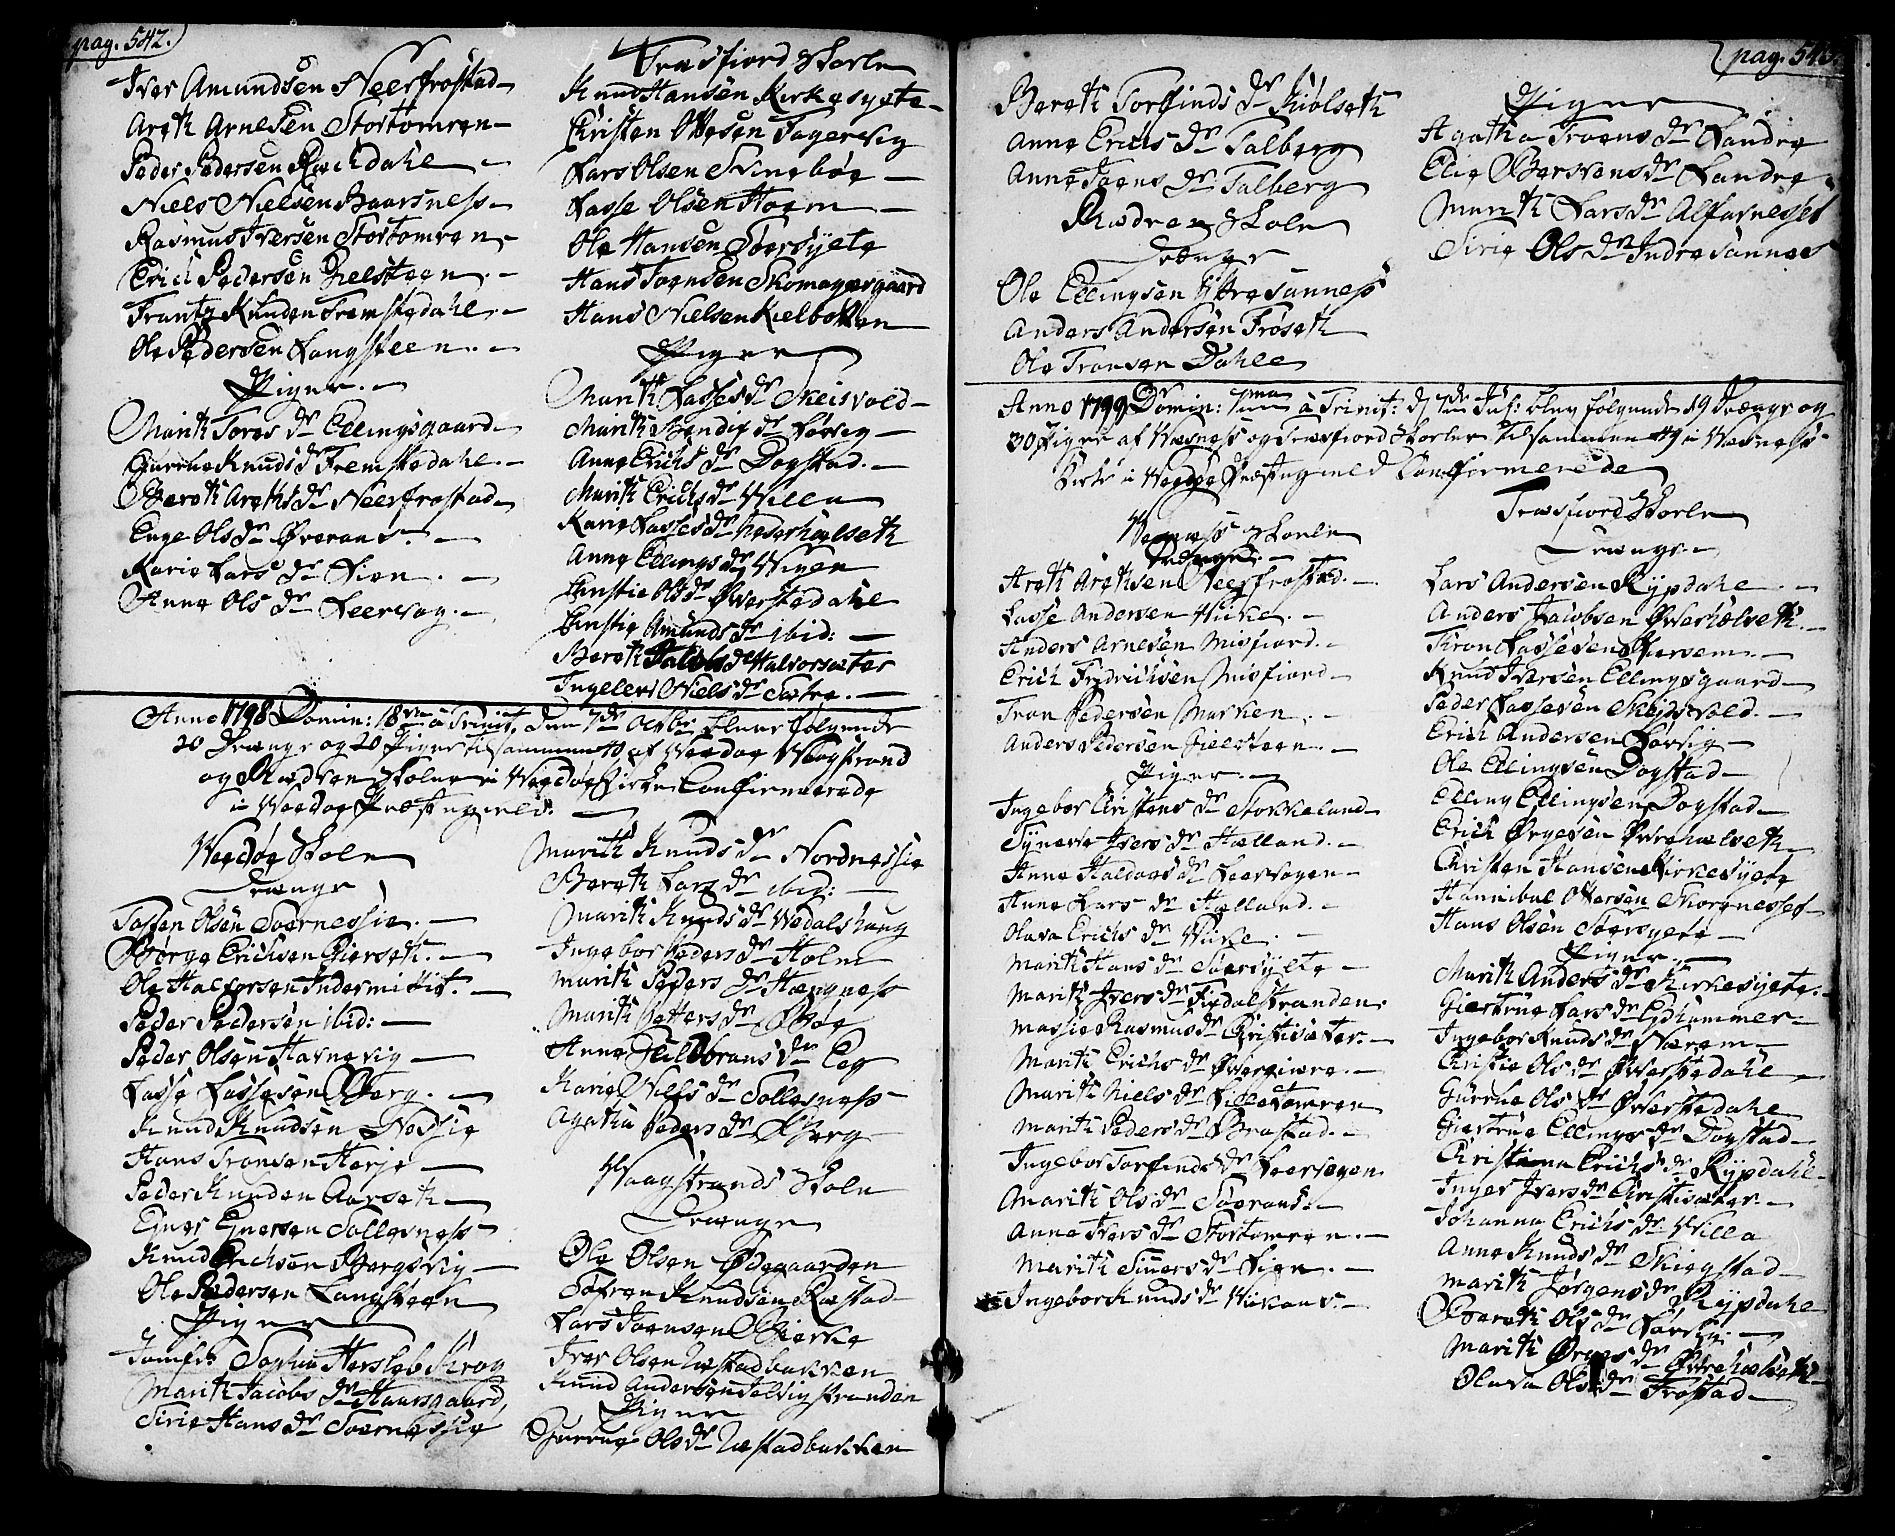 pag. 542.
Iver Amundsen Neerfrostad
Areth Arnesen Stortomren
Peder Pedersen Rechdahl
Niels Nielsen Baarsness
Rasmus Iversen Stortomren
Erich Pedersen Gielsteen
Frantz Knuden Fremstedahl
Ole Pedersen Langsteen
Piger
Marith Tores dr Ellingsgaard
Gurrine Knuds dr Fremstedahl
Bereth Areths dr Neerfrostad
Enge Ols dr Øveraas
Karie Lars dr Lien
Anne Ols dr Leervog
Tresfiord Skole
Knud Hansen Kirkesyete
Christen Ottesen Fagervig
Lars Olsen Svinebøe
Lasse Olsen Hoem
Ole Hansen Søersyete
Hans Joensen Skomagergaard
Hans Nielsen Kielbotten
Piger
Marith Lasses dr Skeisvold
Marith Bendix dr Lovig
Anne Erichs dr Dogstad
Marith Erichs dr Willa
Karie Lasses dr Nederhelseth
Anne Ellings dr Wigen
Christie Ols dr Øverstedahl
Christie Amunds dr ibid:
Bereth Jacobs dr Halvorsæter
Ingeler Niels dr Sætre
Anno 1798 Domin: 18de à Trinit, den 7de Octbr blev følgende
20 Drenge og 20 Piger tilsammen 40 af Weedøe Waagstrand
og Rødven Skoler i Weedøe Kirke Confirmerede
i Weedøe Præstegield.
Weedøe Skole
Drenge
Toffen Olsen Soernessie
Børge Erichsen Gierseth
Ole Halvorsen Indermitet
Peder Pedersen ibid:
Peder Olsen Havnevig
Lasse Lassesen Berg
Knud Knudsen Nessie
Hans Tronsen Herje
Peder Knuden Aarseth
Einer Einersen Sollesness
Knud Erichsen Bergsvig
Ole Pedersen Langsteen
Piger
Jomfr: Sophia Hersleb Krog
Marith Jacobs dr Haarsgaard
Sirie Hans dr Soernessie
Marith Knuds dr Nordnessie
Bereth Lars dr ibid:
Marith Knuds dr Wedalshaug
Ingebor Peders dr Holm
Marith Peders dr Hegness
Marith Petters dr Bøe
Anne Hildbrans dr Eeg
Karie Nills dr Sollesness
Agatha Peders dr Berg
Waagstrands Skole
Drenge
Ole Olsen Ødegaarden
Tosten Knudsen Restad
Lars Joensen Bierke
Iver Olsen Næstadbakken
Knud Andersen Solvigstranden
Piger
Gurrine Ols dr Næstadbakken
pag. 543.
Bereth Torfinds dr Kiølseth
Anne Erichs dr Talberg
Anne Joens dr Talberg
Rødven Skole
Drenge
Ole Ellingsen Ytresanness
Anders Andersen Frøseth
Ole Tronsen Dahle
Piger
Agatha Troens dr Landre
Elie Bersvens dr Landre
Marith Lars dr Alfarnesset
Sirie Ols dr Indresannes
Anno 1799 Domin: 7ma à Trinit: d 7de Jul: blev følgende 19 Drenge og
30 Piger af Wæness og Tresfiord Skoler tilsammen 49 i Wæness
Kirke i Weedøe Præstegield Confirmerede
Weness Skole
Drenge
Areth Arethsen Neerfrostad
Lasse Andersen Wiike
Anders Arnesen Misfiord
Erich Fredrichsen Misfiord
Tron Pedersen Marken
Anders Pedersen Gielsteen
Piger
Ingebor Christens dr Stokkeland
Synneve Ivers dr Helland
Anne Haldoers dr Leervogen
Anne Lars dr Helland
Olava Erichs dr Wiike
Marith Hans dr Søersylte
Marith Ivers dr Fixdalstranden
Massie Rasmus dr Christisæter
Marith Erichs dr Øvergiere
Marith Niels dr Lilletomren
Marith Peders dr Brastad
Ingebor Torfinds dr Leervogen
Marith Ols dr Søeraas
Anne Ivers dr Stortomren
Marith Siuers dr Lien
Ingebor Knuds dr Wikans
Tresfiord Skole
Drenge
Lars Andersen Rypdahl
Anders Jacobsen Øverhelseth
Tron Lassesen Kiersem
Knud Iversen Ellingsgaard
Peder Lassesen Skeisvold
Erich Andersen Lovig
Ole Ellingsen Dogstad
Elling Ellingsen Dogstad
Erich Ørgesen Øvrehelseth
Christen Hansen Kirkesyete
Hannibal Ottersen Skorgnesset
Hans Olsen Søersyete
Piger
Marith Anders dr Kirkesyete
Giertrue Lars dr Eidhammer
Ingebor Knuds dr Nærem
Christie Ols dr Øverstedahl
Gurrine Ols dr Øverstedahl
Giertrue Ellings dr Dogstad
Christiana Erichs dr Rypdahl
Inger Ivers dr Christisæter
Johanna Erichs dr Willa
Anne Knuds dr Skiegstad
Marith Jørgens dr Rypdahl
Bereth Ols dr Lovig
Marith Ørges dr Øvrehelseth
Olava Ols dr Frostad